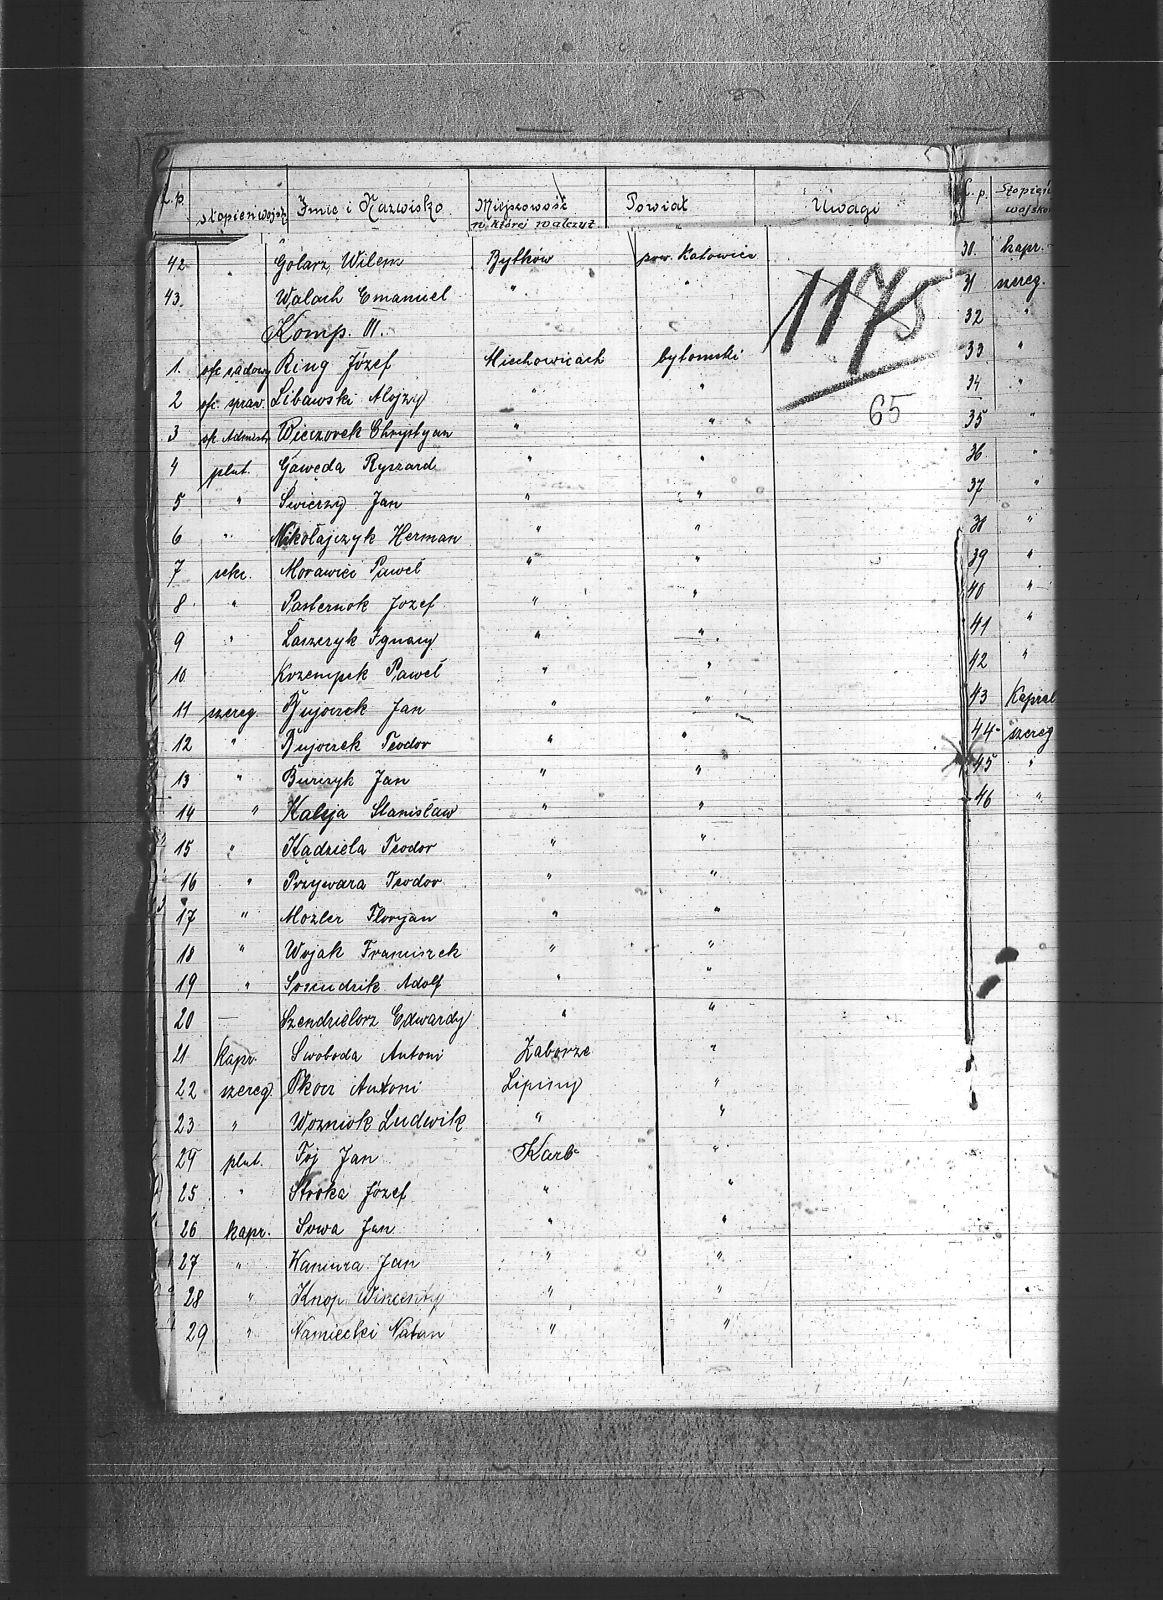 L.p. Stopień wojsk. Imię i Nazwisko Miejscowość w której walczył Powiat Uwagi
42 " Golarz Wilem Bytków pow. Katowice
43. Walach Emanuel " "
Komp. III.
1175
65
1. of. sądowy Ring Józef Miechowicach bytomski
2 of. spraw. Libawski Alojzy " "
3 of. Administ. Wieczorek Chrystyan " "
4 plut. Gawęda Ryszard " "
5 " Świerzy Jan " "
6 " Mikołajczyk Herman " "
7 sekc. Morawiec Paweł " "
8 " Pasternok Józef " "
9 " Łaszczyk Ignacy " "
10 Krzempek Paweł " "
11 szereg. Bujoczek Jan " "
12 " Bujoczek Teodor " "
13 " Burczyk Jan " "
14 " Kaluja Stanisław " "
15 " Kądziela Teodor " "
16 " Przywara Teodor " "
17 " Mozler Floryan " "
18 " Wojak Franciszek " "
19 " Adolf " "
20 Szendzielorz Edwardy " "
21 kapr. Swoboda Antoni Zaborze "
22 szereg. Skorz Antoni Lipiny "
23 " Wozniok Ludwik " "
24 plut. Foj Jan Karb "
25 " Stroka Józef " "
26 kapr. Sowa Jan " "
27 " Kaniura Jan " "
28 " Knop Wincenty " "
29 " Namiecki Natan " "
L.p. Stopień wojsko
30. kapr.
31 szereg.
32 "
33 "
34 "
35 "
36 "
37 "
38 "
39 "
40 "
41 "
42 "
43 Kapral
44 szereg
45 "
46 "